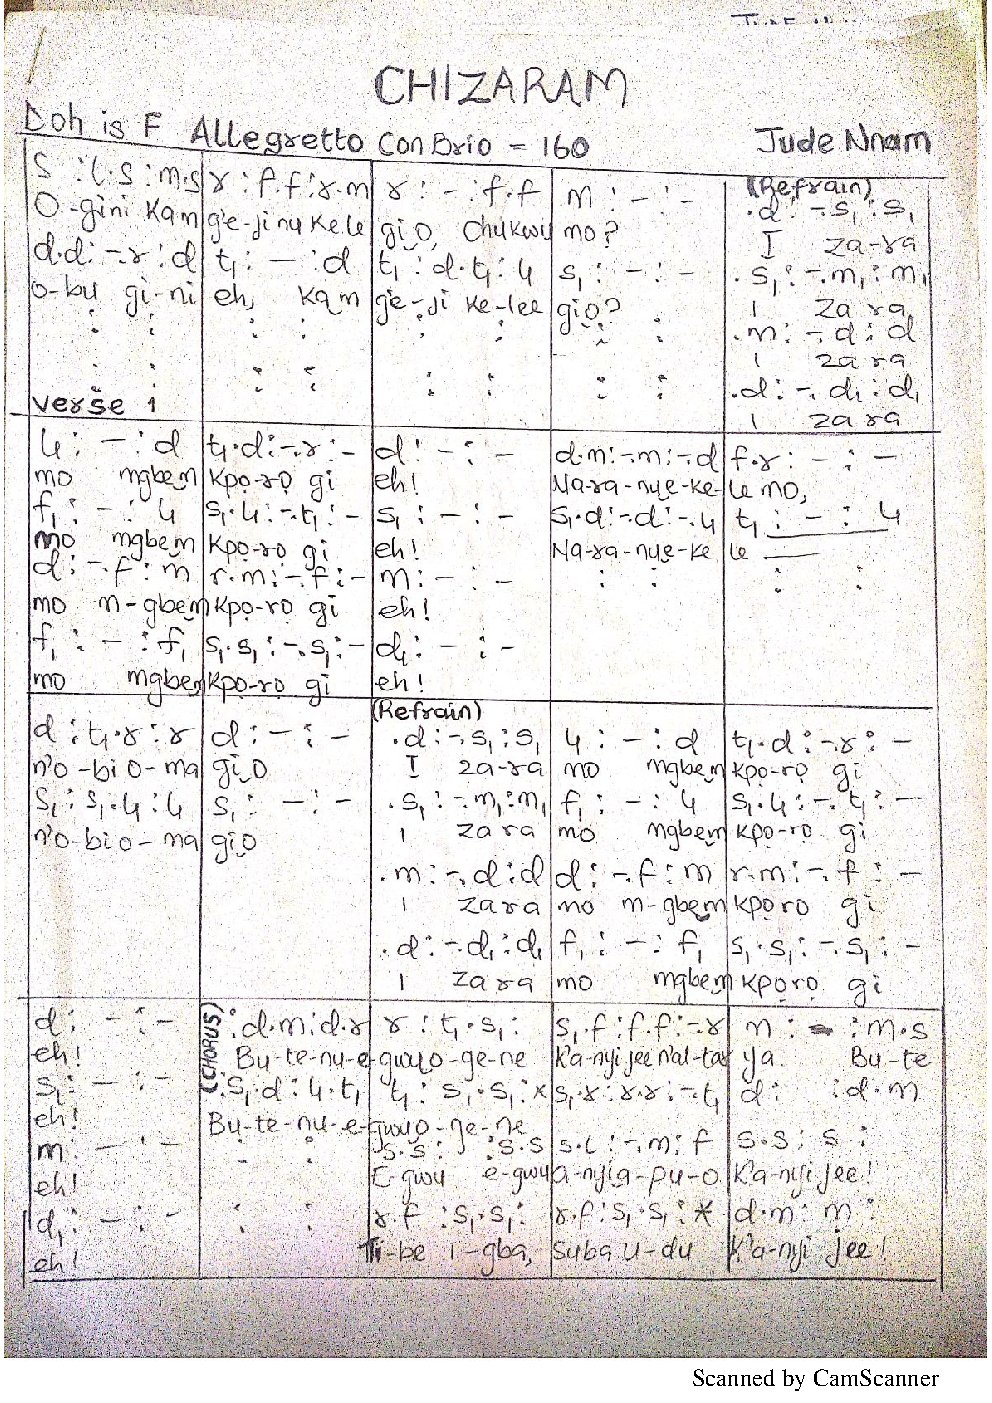 CHIZARAM
Doh is F Allegretto Con Brio = 160 Jude Nnam
S :l.s :m.s | r :f.f :r.m | r :- :f.f | m :- :- | (Refrain) .d :-.s₁ :s₁
O-gini Kam | ge-ji nu ke le | gị O, Chukwu | mo? | I za-ra
d.d :-.r :d | t₁ :- :d | t₁ :d.t₁ :l₁ | s₁ :- :- | .s₁ :-.m₁ :m₁
o-bu gi-ni | eh, Kam | ge-ji ke-lee | gịọ? | I za ra
: : | : : | : : | : : | .m :-.d :d
I za ra
: : | : : | : : | : : | .d :-.d₁ :d₁
Verse 1 | I za ra
l₁ :- :d | t₁.d :-.r :- | d :- :- | d.m :-.m :-.d | f.r :- :-
mo mgbem | kpọ-rọ gi | eh! | Na-ra-nụe-ke- | le mo,
f₁ :- :l₁ | s₁.l₁ :-.t₁ :- | s₁ :- :- | s₁.d :-.d :-.l₁ | t₁ :- :l₁
mo mgbem | kpọ-rọ gi | eh! | Na-ra-nụe-ke | le
d :-.f :m | r.m :-.f :- | m :- :- | : : | : :
mo m-gbem | kpọ-rọ gi | eh!
f₁ :- :f₁ | s₁.s₁ :-.s₁ :- | d₁ :- :-
mo mgbem | kpọ-rọ gi | eh!
(Refrain)
d :t₁.r :r | d :- :- | .d :-.s₁ :s₁ | l₁ :- :d | t₁.d :-.r :-
n'o-bi o-ma | gị O | I za-ra | mo mgbem | kpọ-rọ gi
s₁ :s₁.l₁ :l₁ | s₁ :- :- | .s₁ :-.m₁ :m₁ | f₁ :- :l₁ | s₁.l₁ :-.t₁ :-
n'o-bi o-ma | gị O | I za ra | mo mgbem | kpọ-rọ gi
.m :-.d :d | d :-.f :m | r.m :-.f :-
I zara | mo m-gbem | kpọrọ gi
.d :-.d₁ :d₁ | f₁ :- :f₁ | s₁.s₁ :-.s₁ :-
I zara | mo mgbem | kpọrọ gi
d :- :- | (CHORUS) :d.m :d.r | r :t₁.s₁ : | s₁.f :f.f :-.r | m :- :m.s
eh! | Bu-te-nu-e- | gwụọ-ge-ne | Ka-nyi jee | ya. Bu-te
s₁ :- :- | :s₁.d :l₁.t₁ | t₁ :s₁.s₁ :x | s₁.r :r.r :-.t₁ | d : :d.m
eh! | Bu-te-nu-e- | gwụọ-ge-ne
m :- :- | : : | s.s : :s.s | s.l :-.m :f | s.s :s :
eh! | E-gwu e-gwu | a-nyig-pu-o | Ka-nyi jee!
d₁ :- :- | : : | r.f :s₁.s₁ : | r.f :s₁.s₁ :* | d.m :m :
eh! | Ti-be i-gba, | suba u-du | Ka-nyi jee!
Scanned by CamScanner